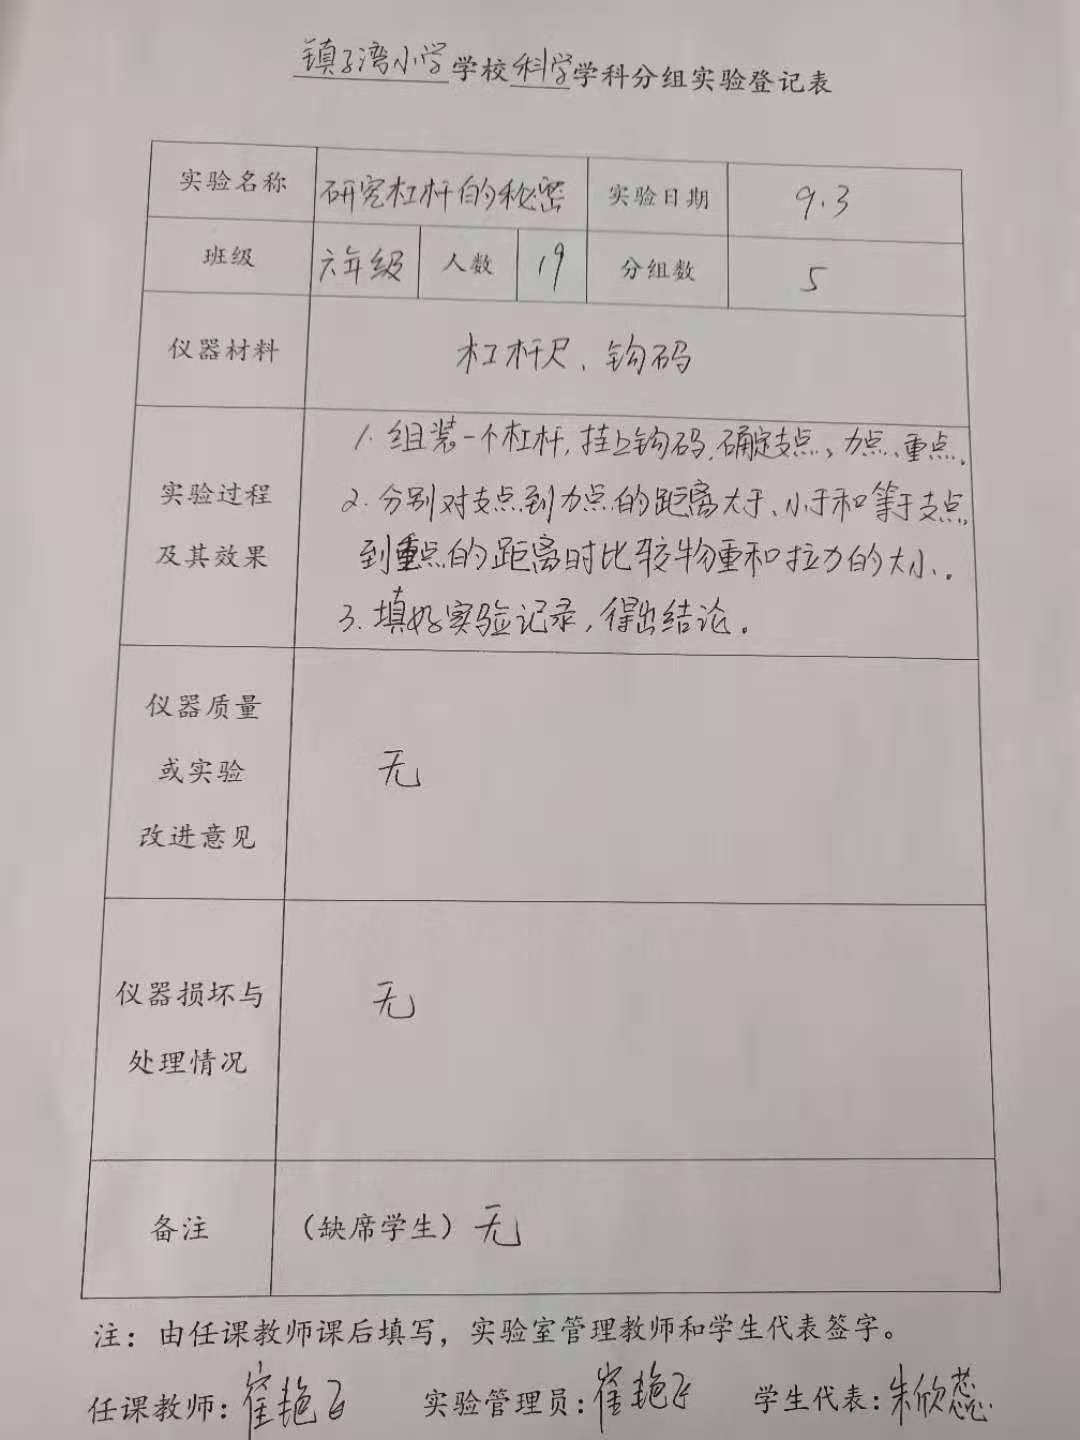 镇子湾小学学校科学学科分组实验登记表
实验名称 研究杠杆的秘密 实验日期 9.3
班级 六年级 人数 19 分组数 5
仪器材料 杠杆尺、钩码
1.组装一个杠杆,挂上钩码,确定支点、力点、重点。
实验过程 2.分别对支点到力点的距离大于、小于和等于支点
及其效果 到重点的距离时比较物重和拉力的大小。
3.填好实验记录,得出结论。
仪器质量
或实验 无
改进意见
仪器损坏与 无
处理情况
备注 (缺席学生)无
注:由任课教师课后填写,实验室管理教师和学生代表签字。
任课教师:崔艳飞 实验管理员:崔艳飞 学生代表:朱欣蕊